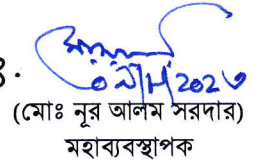 ৪.
২০২৩
(মোঃ নূর আলম সরদার)
মহাব্যবস্থাপক